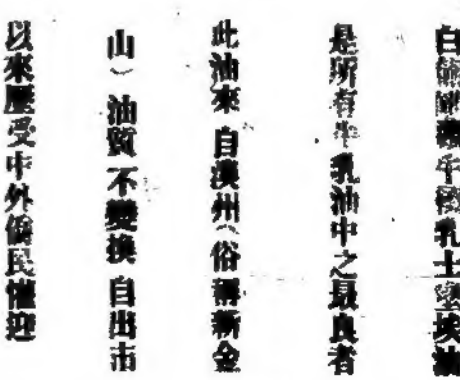 白熊牌罐牛樽乳士堊埃油
是所有牛乳油中之最良者
此油來自澳州(俗稱新金
山)油質不變換自出市
以來歷受中外僑民懽迎